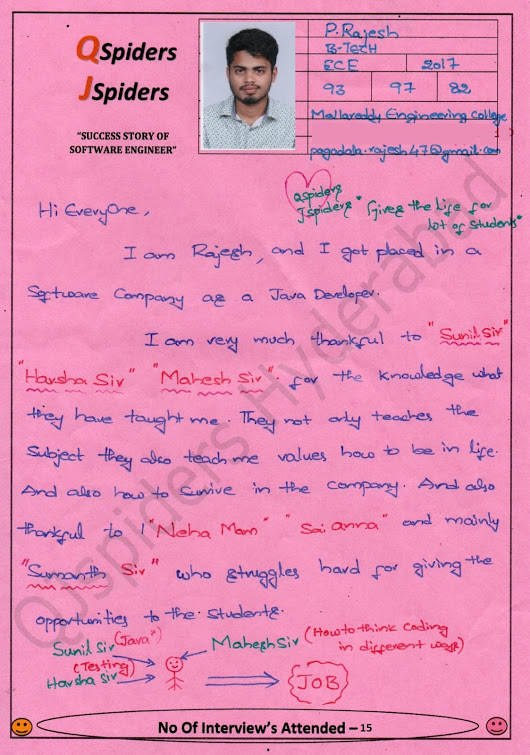 QSpiders
JSpiders
"SUCCESS STORY OF
SOFTWARE ENGINEER"
P.Rajesh
B-TECH
ECE 2017
93 97 82
Mallareddy Engineering College
pagadala.rajesh47@gmail.com
Qspiders
Jspiders" Gives the life for
lot of students"
Hi EveryOne,
I am Rajesh, and I got placed in a
Software Company as a Java Developer.
I am very much thankful to "Sunil Sir"
"Harsha Sir" "Mahesh Sir" for the knowledge what
they have taught me. They not only teaches the
Subject they also teach me values how to be in life.
And also how to Survive in the company. And also
thankful to "Neha Mam" "Sai anna" and mainly
"Sumanth Sir" who struggles hard for giving the
opportunities to the Students.
Sunil Sir (Java")
(Testing)
Harsha Sir
Mahesh Sir (How to think coding
in different ways)
JOB
No Of Interview's Attended – 15
QJspiders Hyderabad